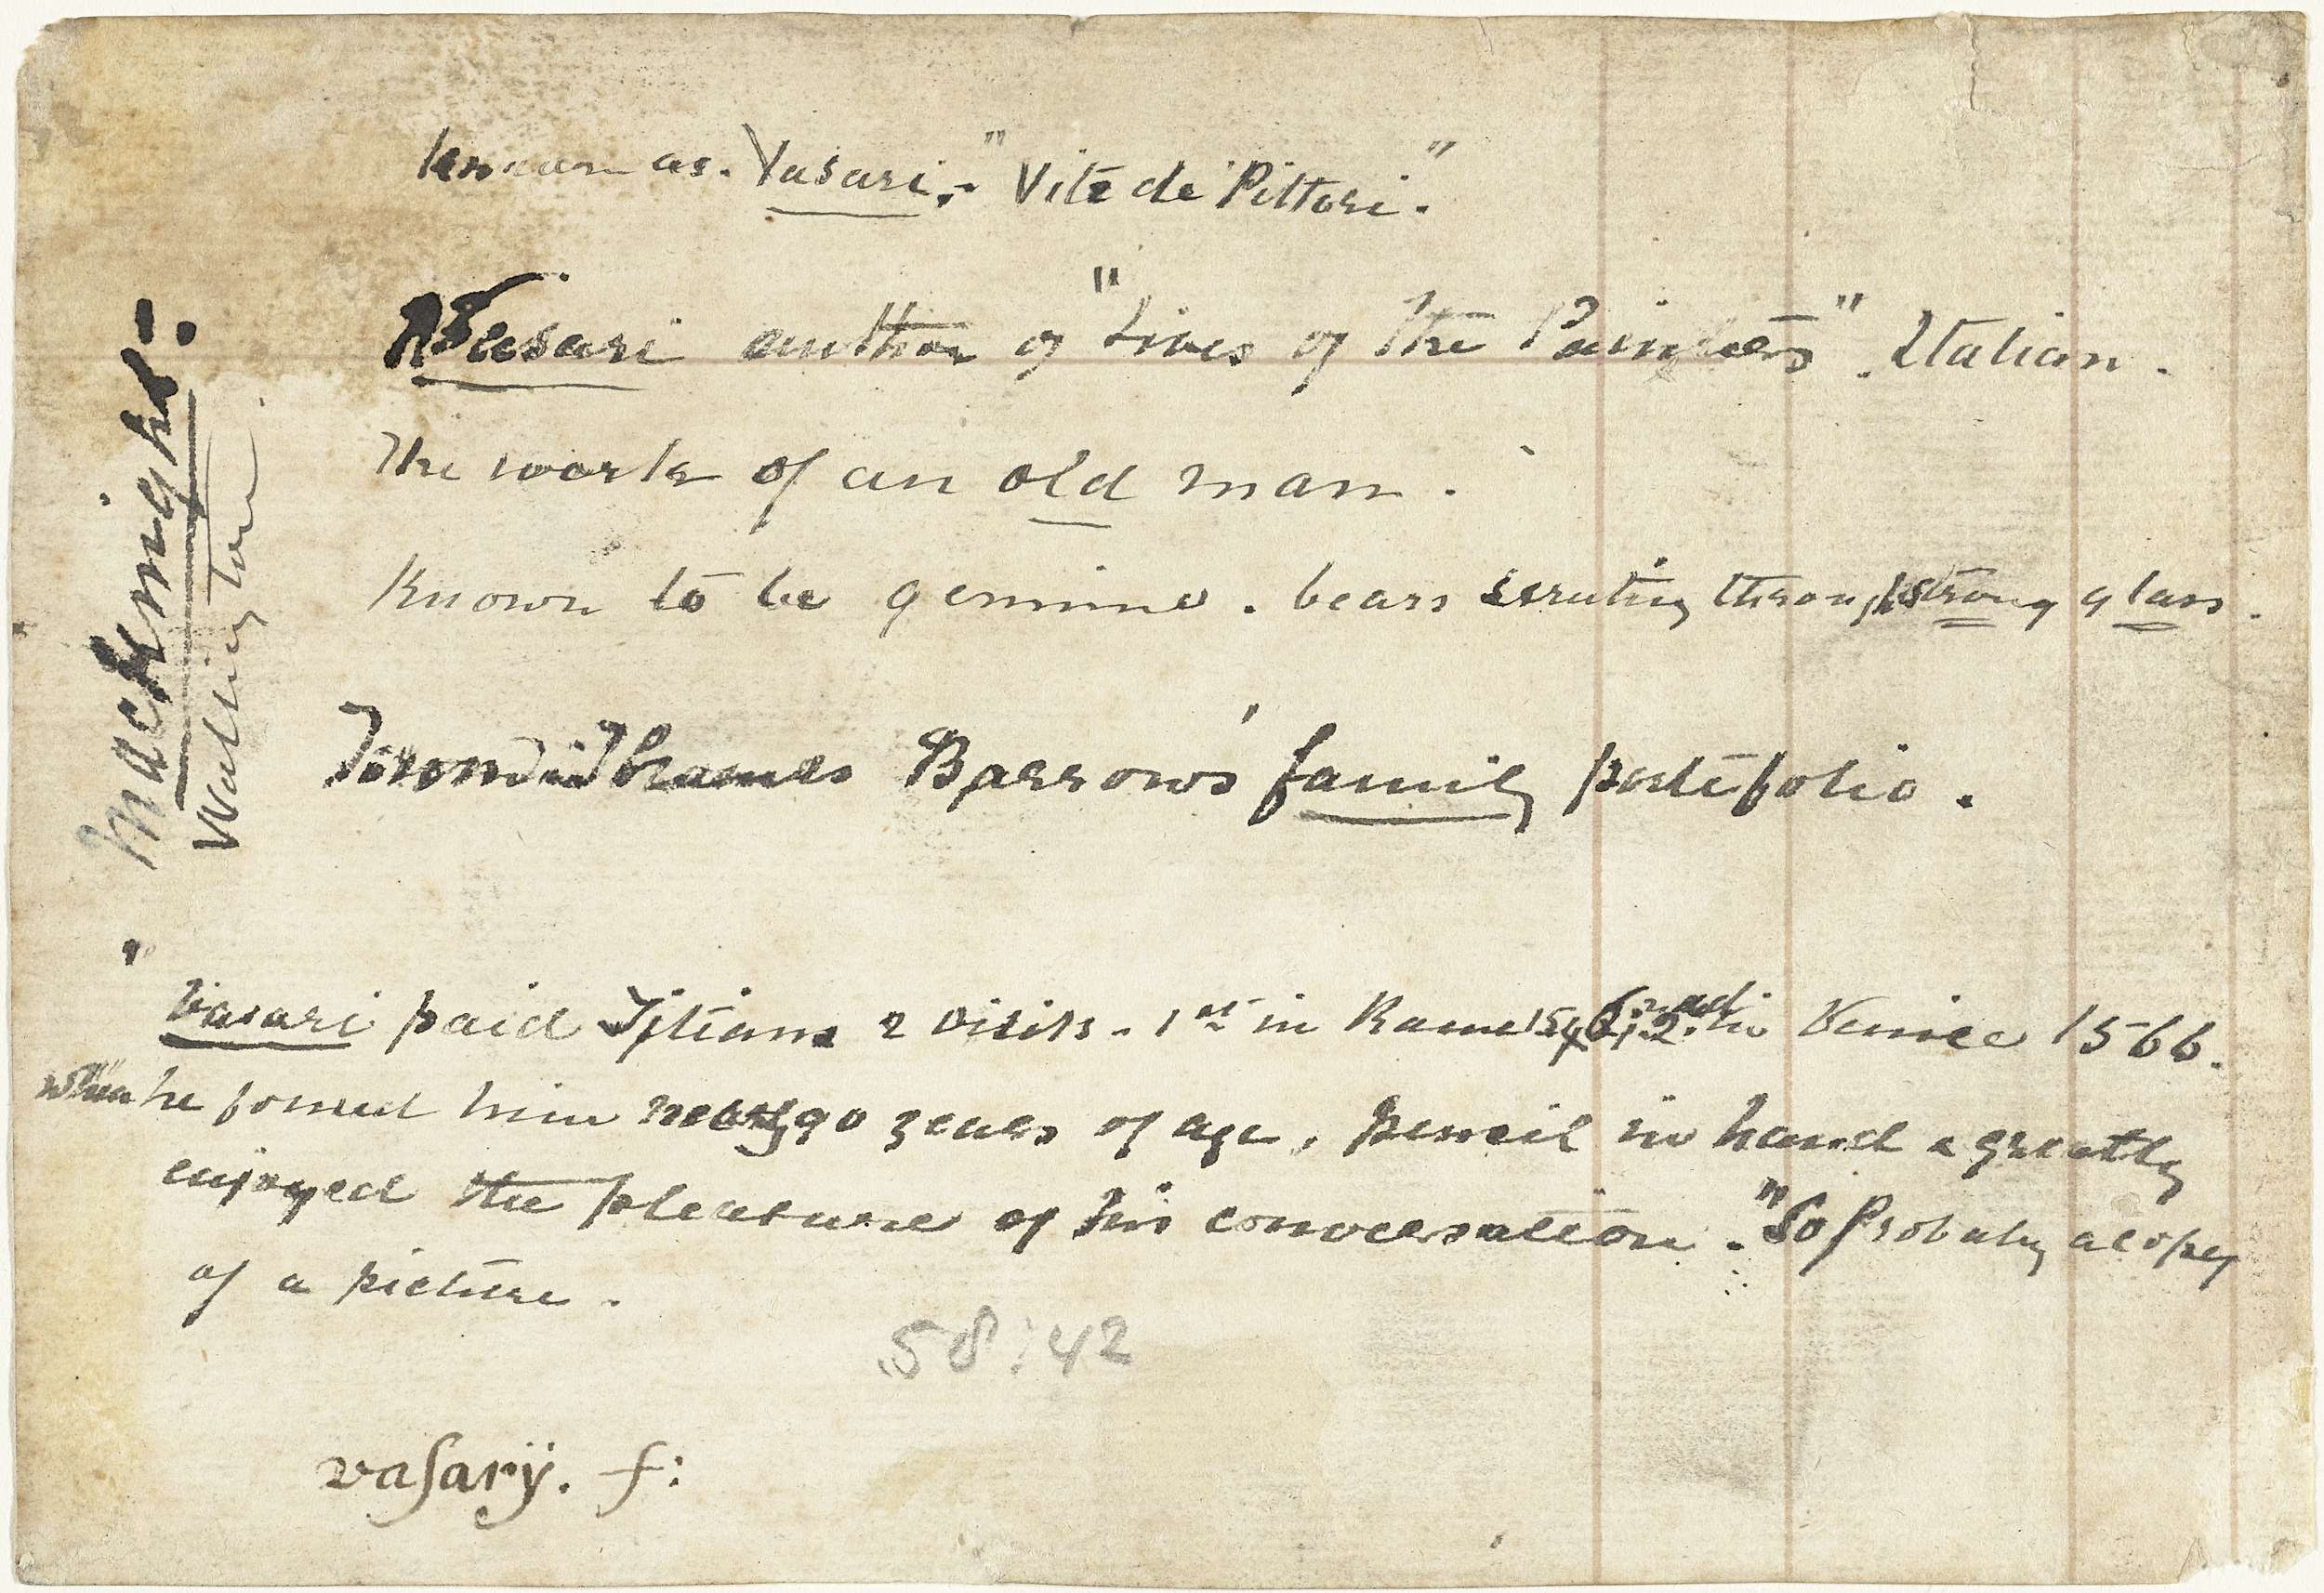 known as. Vasari.- "Vite de Pittori."
Vasari author of "Lives of the Painters". Italian.
The work of an old man.
Known to be genuine. bears scrutiny through strong glass.
Thomas Barrow's family portefolio.
Mackenight:-
Wallingtore
"Vasari paid Titian 2 visits. 1st in Rome 1546; 2nd in Venice 1566.
when he found him nearly 90 years of age, pencil in hand & greatly
enjoyed the pleasure of his conversation." So Probably a copy
of a picture.
58:42
vaſarÿ. f: